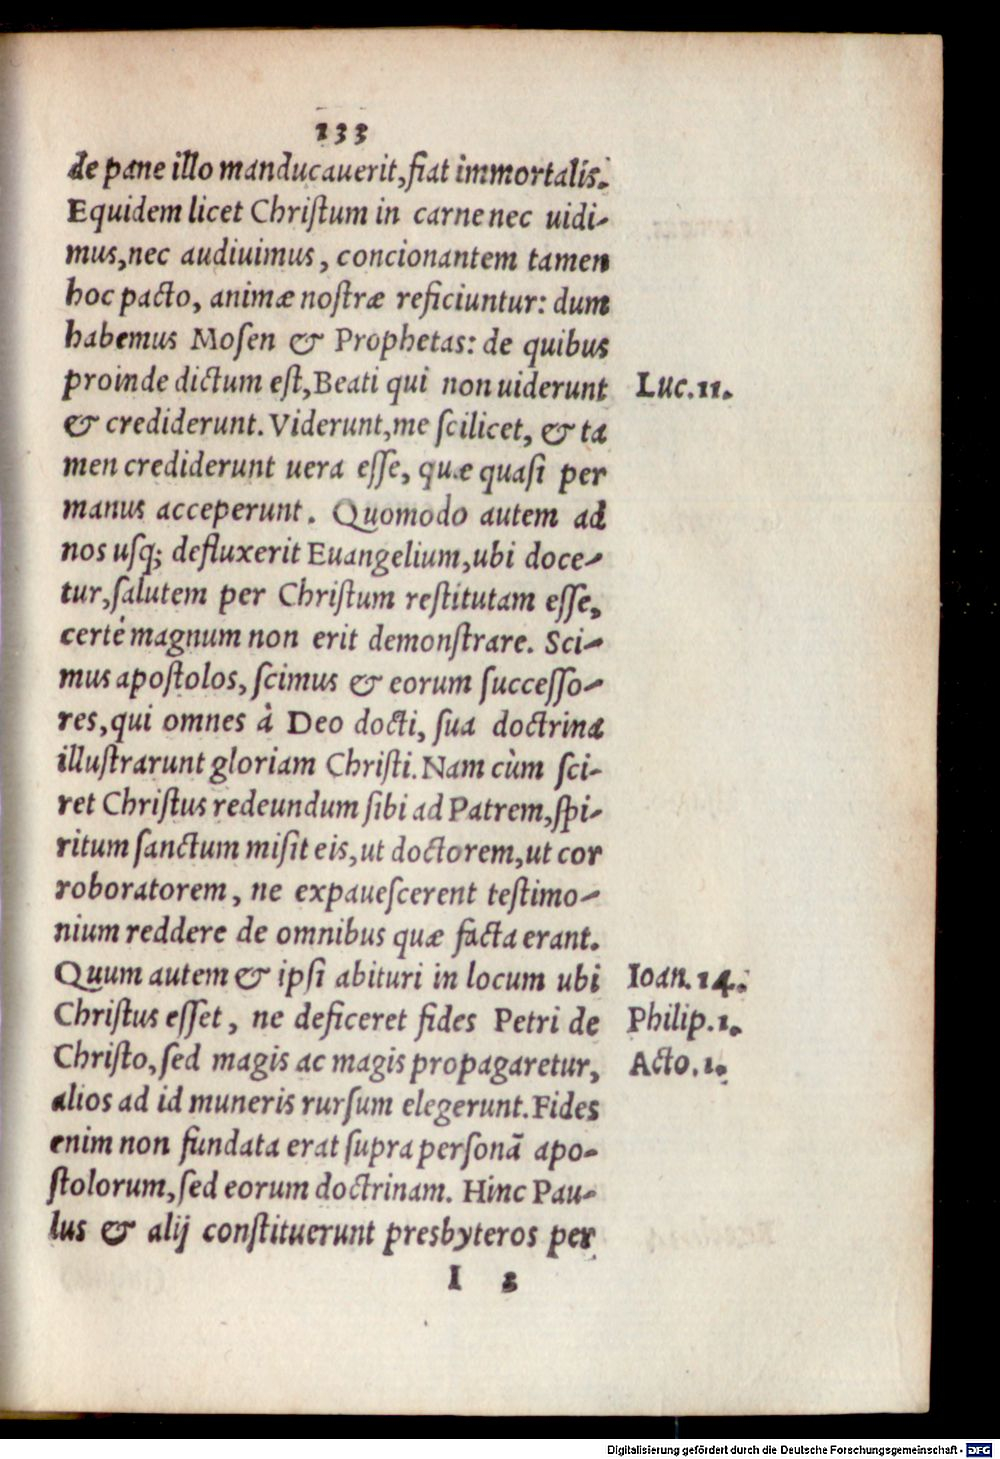 133
de pane illo manducauerit, fiat immortalis.
Equidem licet Chriſtum in carne nec uidi-
mus, nec audiuimus, concionantem tamen
hoc pacto, animæ noſtræ reficiuntur: dum
habemus Moſen & Prophetas: de quibus
proinde dictum eſt, Beati qui non uiderunt Luc.11.
& crediderunt. Viderunt, me ſcilicet, & ta
men crediderunt uera eſſe, quæ quaſi per
manus acceperunt. Quomodo autem ad
nos uſq; defluxerit Euangelium, ubi doce-
tur, ſalutem per Chriſtum reſtitutam eſſe,
certè magnum non erit demonſtrare. Sci-
mus apoſtolos, ſcimus & eorum ſucceſſo-
res, qui omnes à Deo docti, ſua doctrina
illuſtrarunt gloriam Chriſti. Nam cùm ſci-
ret Chriſtus redeundum ſibi ad Patrem, ſpi-
ritum ſanctum miſit eis, ut doctorem, ut cor
roboratorem, ne expaueſcerent teſtimo-
nium reddere de omnibus quæ facta erant.
Quum autem & ipſi abituri in locum ubi Ioan.14.
Chriſtus eſſet, ne deficeret fides Petri de Philip.1.
Chriſto, ſed magis ac magis propagaretur, Acto.1.
alios ad id muneris rurſum elegerunt. Fides
enim non fundata erat ſupra perſonã apo-
ſtolorum, ſed eorum doctrinam. Hinc Pau-
lus & alij conſtituerunt presbyteros per
I 2
Digitalisierung gefördert durch die Deutsche Forschungsgemeinschaft - DFG